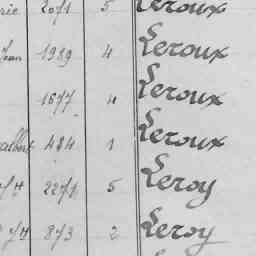 rie 2071 5 Leroux
Jean 1989 4 Leroux
1677 4 Leroux
albert 484 1 Leroux
2271 5 Leroy
873 2 Leroy